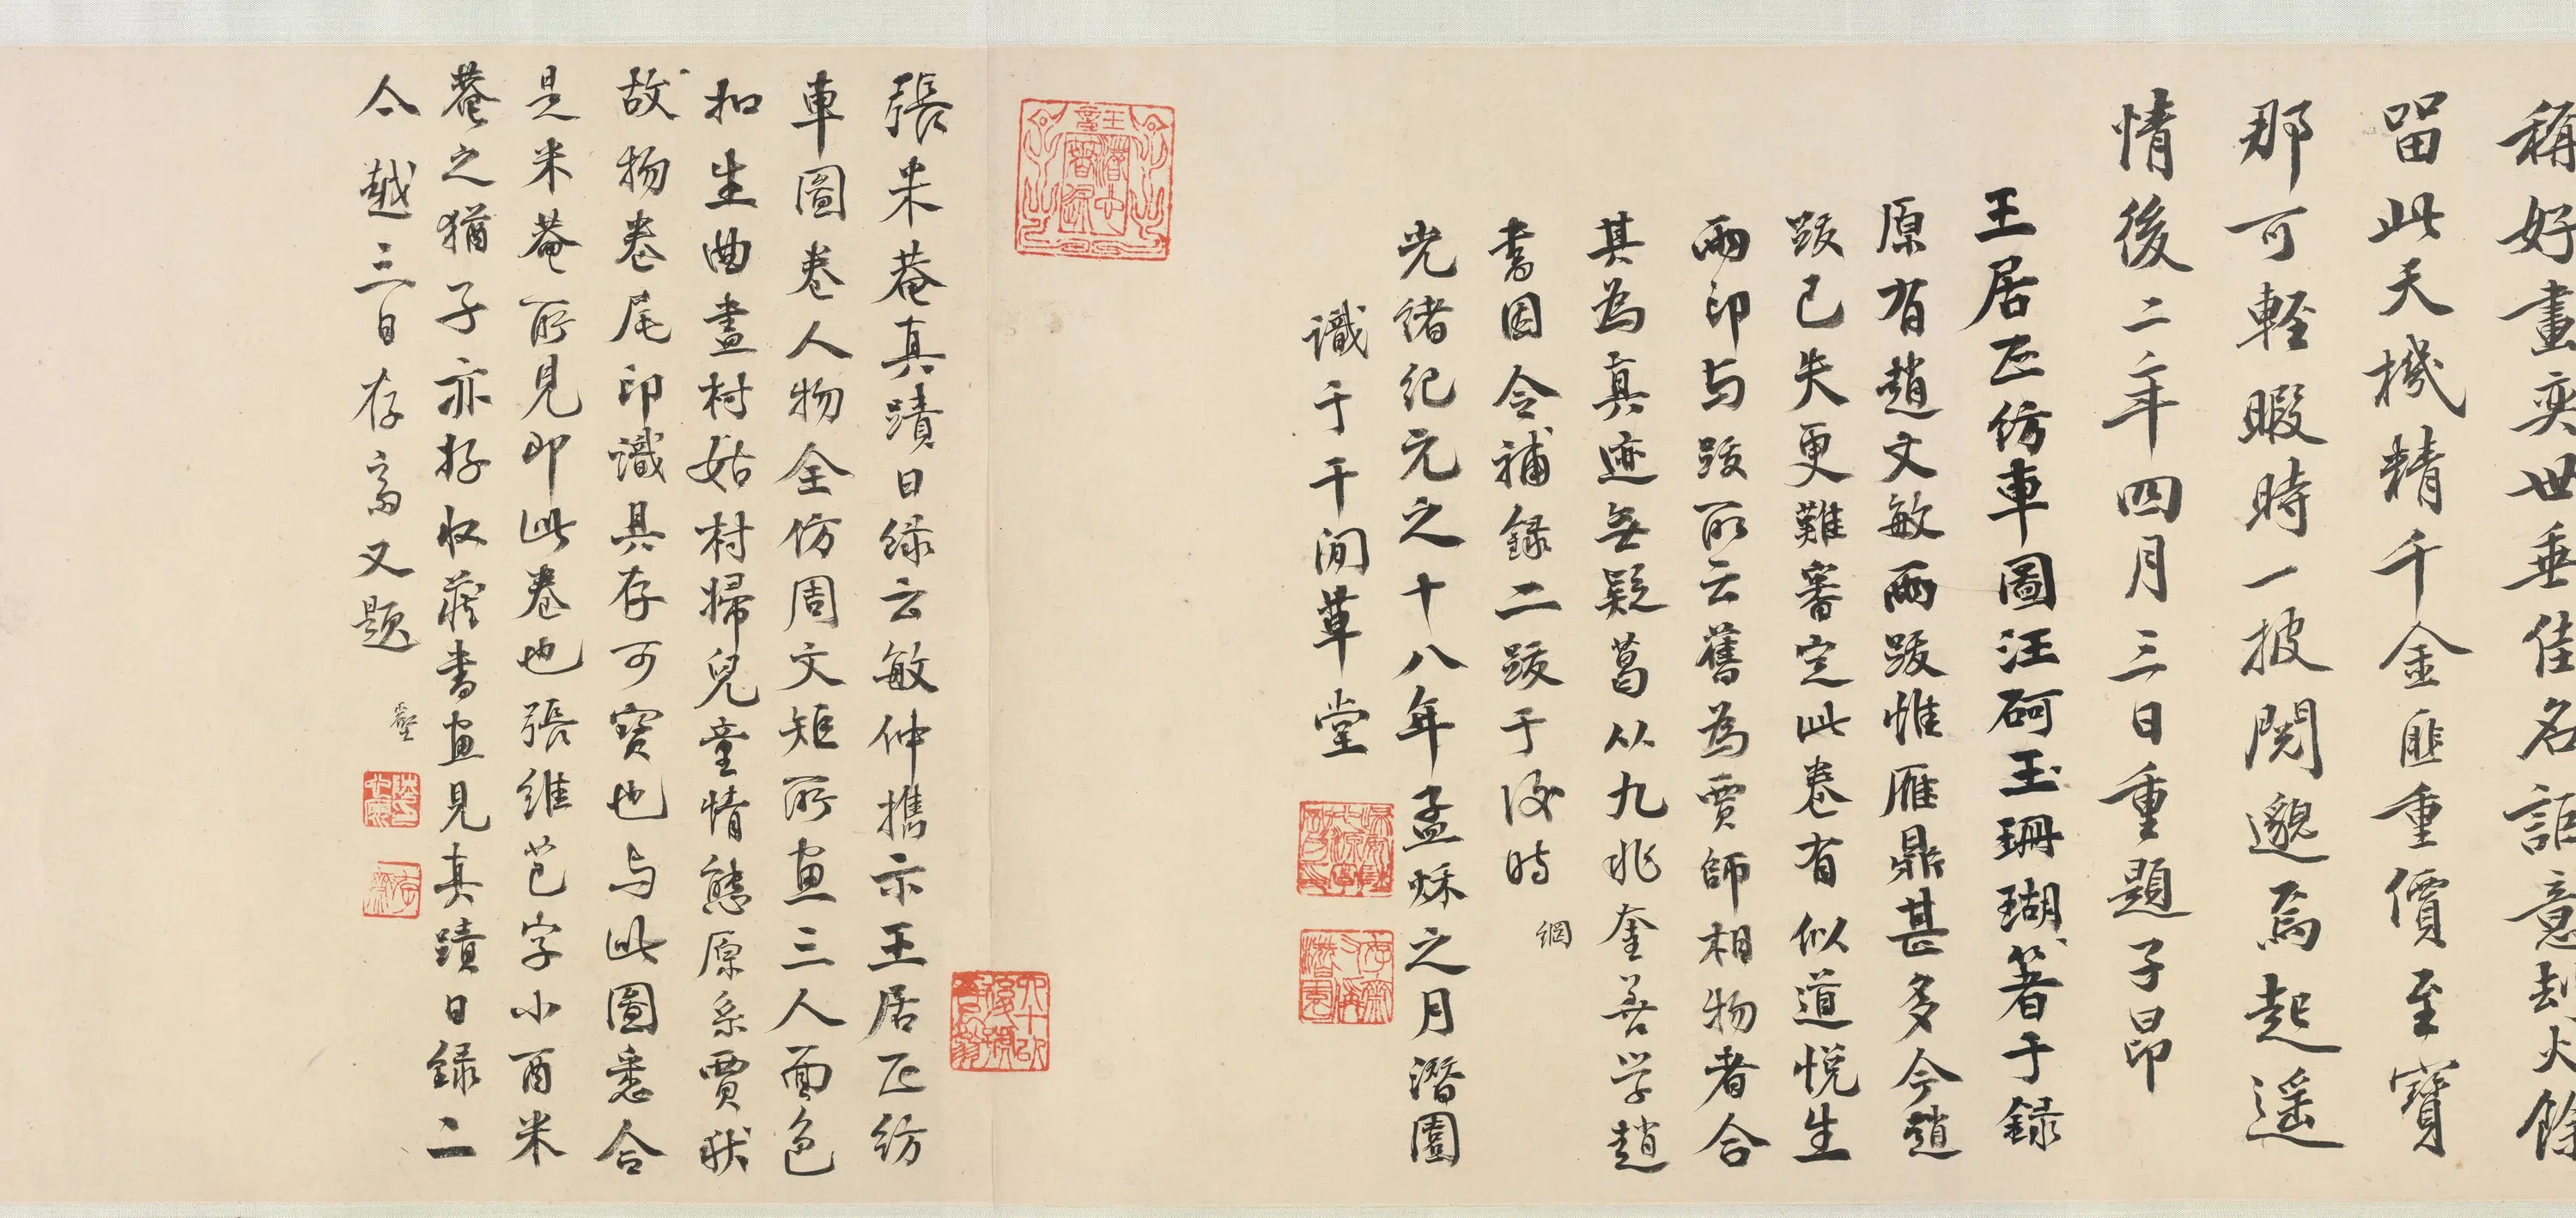 稱好畫奕世垂佳名詎意劫火餘
留此天機精千金匪重價至寶
那可輕暇時一披閱邈焉起遥
情後二年四月三日重題子昂
王居正仿車圖汪砢玉珊瑚著于錄
原有趙文敏兩跋惟雁鼎甚多今趙
跋已失更難審定此卷有似道悅生
兩印与跋所云舊為賈師相物者合
其為真迹無疑葛從九兆奎善学趙
書因令補錄二跋于後時
綱
光緒紀元之十八年孟秌之月潛園
識于千閒草堂
張米菴真蹟日錄云敏仲攜示王居正紡
車圖卷人物全仿周文矩所畫三人面色
和生曲盡村姑村婦兒童情態原系賈猌
故物卷尾印識具存可寶也与此圖悉合
是米菴所見即此卷也張維芑字小酉米
菴之猶子亦好收藏書畫見真蹟日錄二
今越三日存斋又題